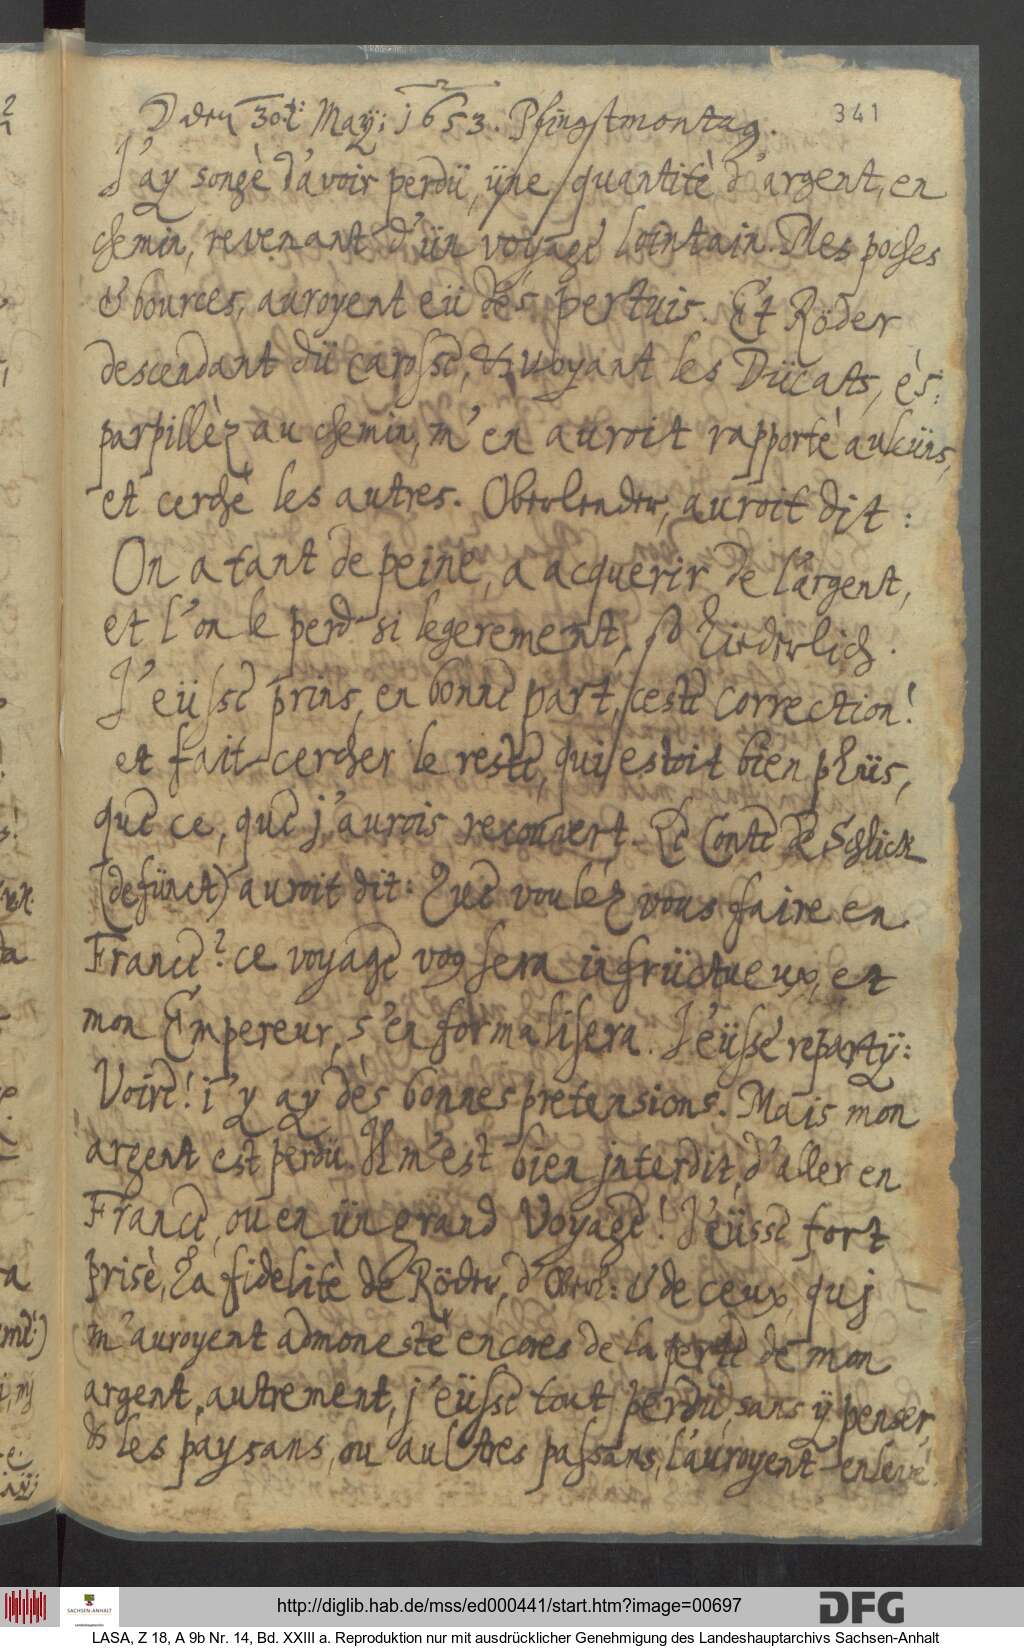 341
☽ den 30t: May: 1653. Pfingstmontag.
J'ay songè d'avoir perdü, üne quantitè d'argent, en
chemin, revenant d'ün voyage lointain. Mes poches
& bources, auroyent eü des pertuis. Et Röder
descendant dü carosse, & voyant les Dücats, ès:
parpillèz au chemin, m'en auroit rapportè aulcüns,
et cerchè les autres. Oberlender, auroit dit:
On a tant de peine, a acquerir de l'argent,
et l'on le perd si legerement, so liederlich.
J'eüsse prins, en bonne part, ceste correction!
et fait cercher le reste, qui estoit bien plüs,
que ce, que j'aurois recouvert. Le Conte de Schlick
(defünct) auroit dit: Que voulèz vous faire en
France? ce voyage vous sera infrüctueux, et
mon Empereur, s'en formalisera. J'eüsse reparty:
Voire! i'y ay dès bonnes pretensions. Mais mon
argent est perdü. Il m'est bien interdit, d'aller en
France, ou en ün grand Voyage! J'eüsse fort
prisè, La fidelitè de Röder, d'Oberl: & de ceux, quj
m'auroyent admonestè encores de la perte de mon
argent, autrement, j'eüsse tout perdü, sans ÿ penser,
& les paysans, ou aultres passans, l'auroyent enlevè.
http://diglib.hab.de/mss/ed000441/start.htm?image=00697
SACHSEN-ANHALT
DFG
LASA, Z 18, A 9b Nr. 14, Bd. XXIII a. Reproduktion nur mit ausdrücklicher Genehmigung des Landeshauptarchivs Sachsen-Anhalt